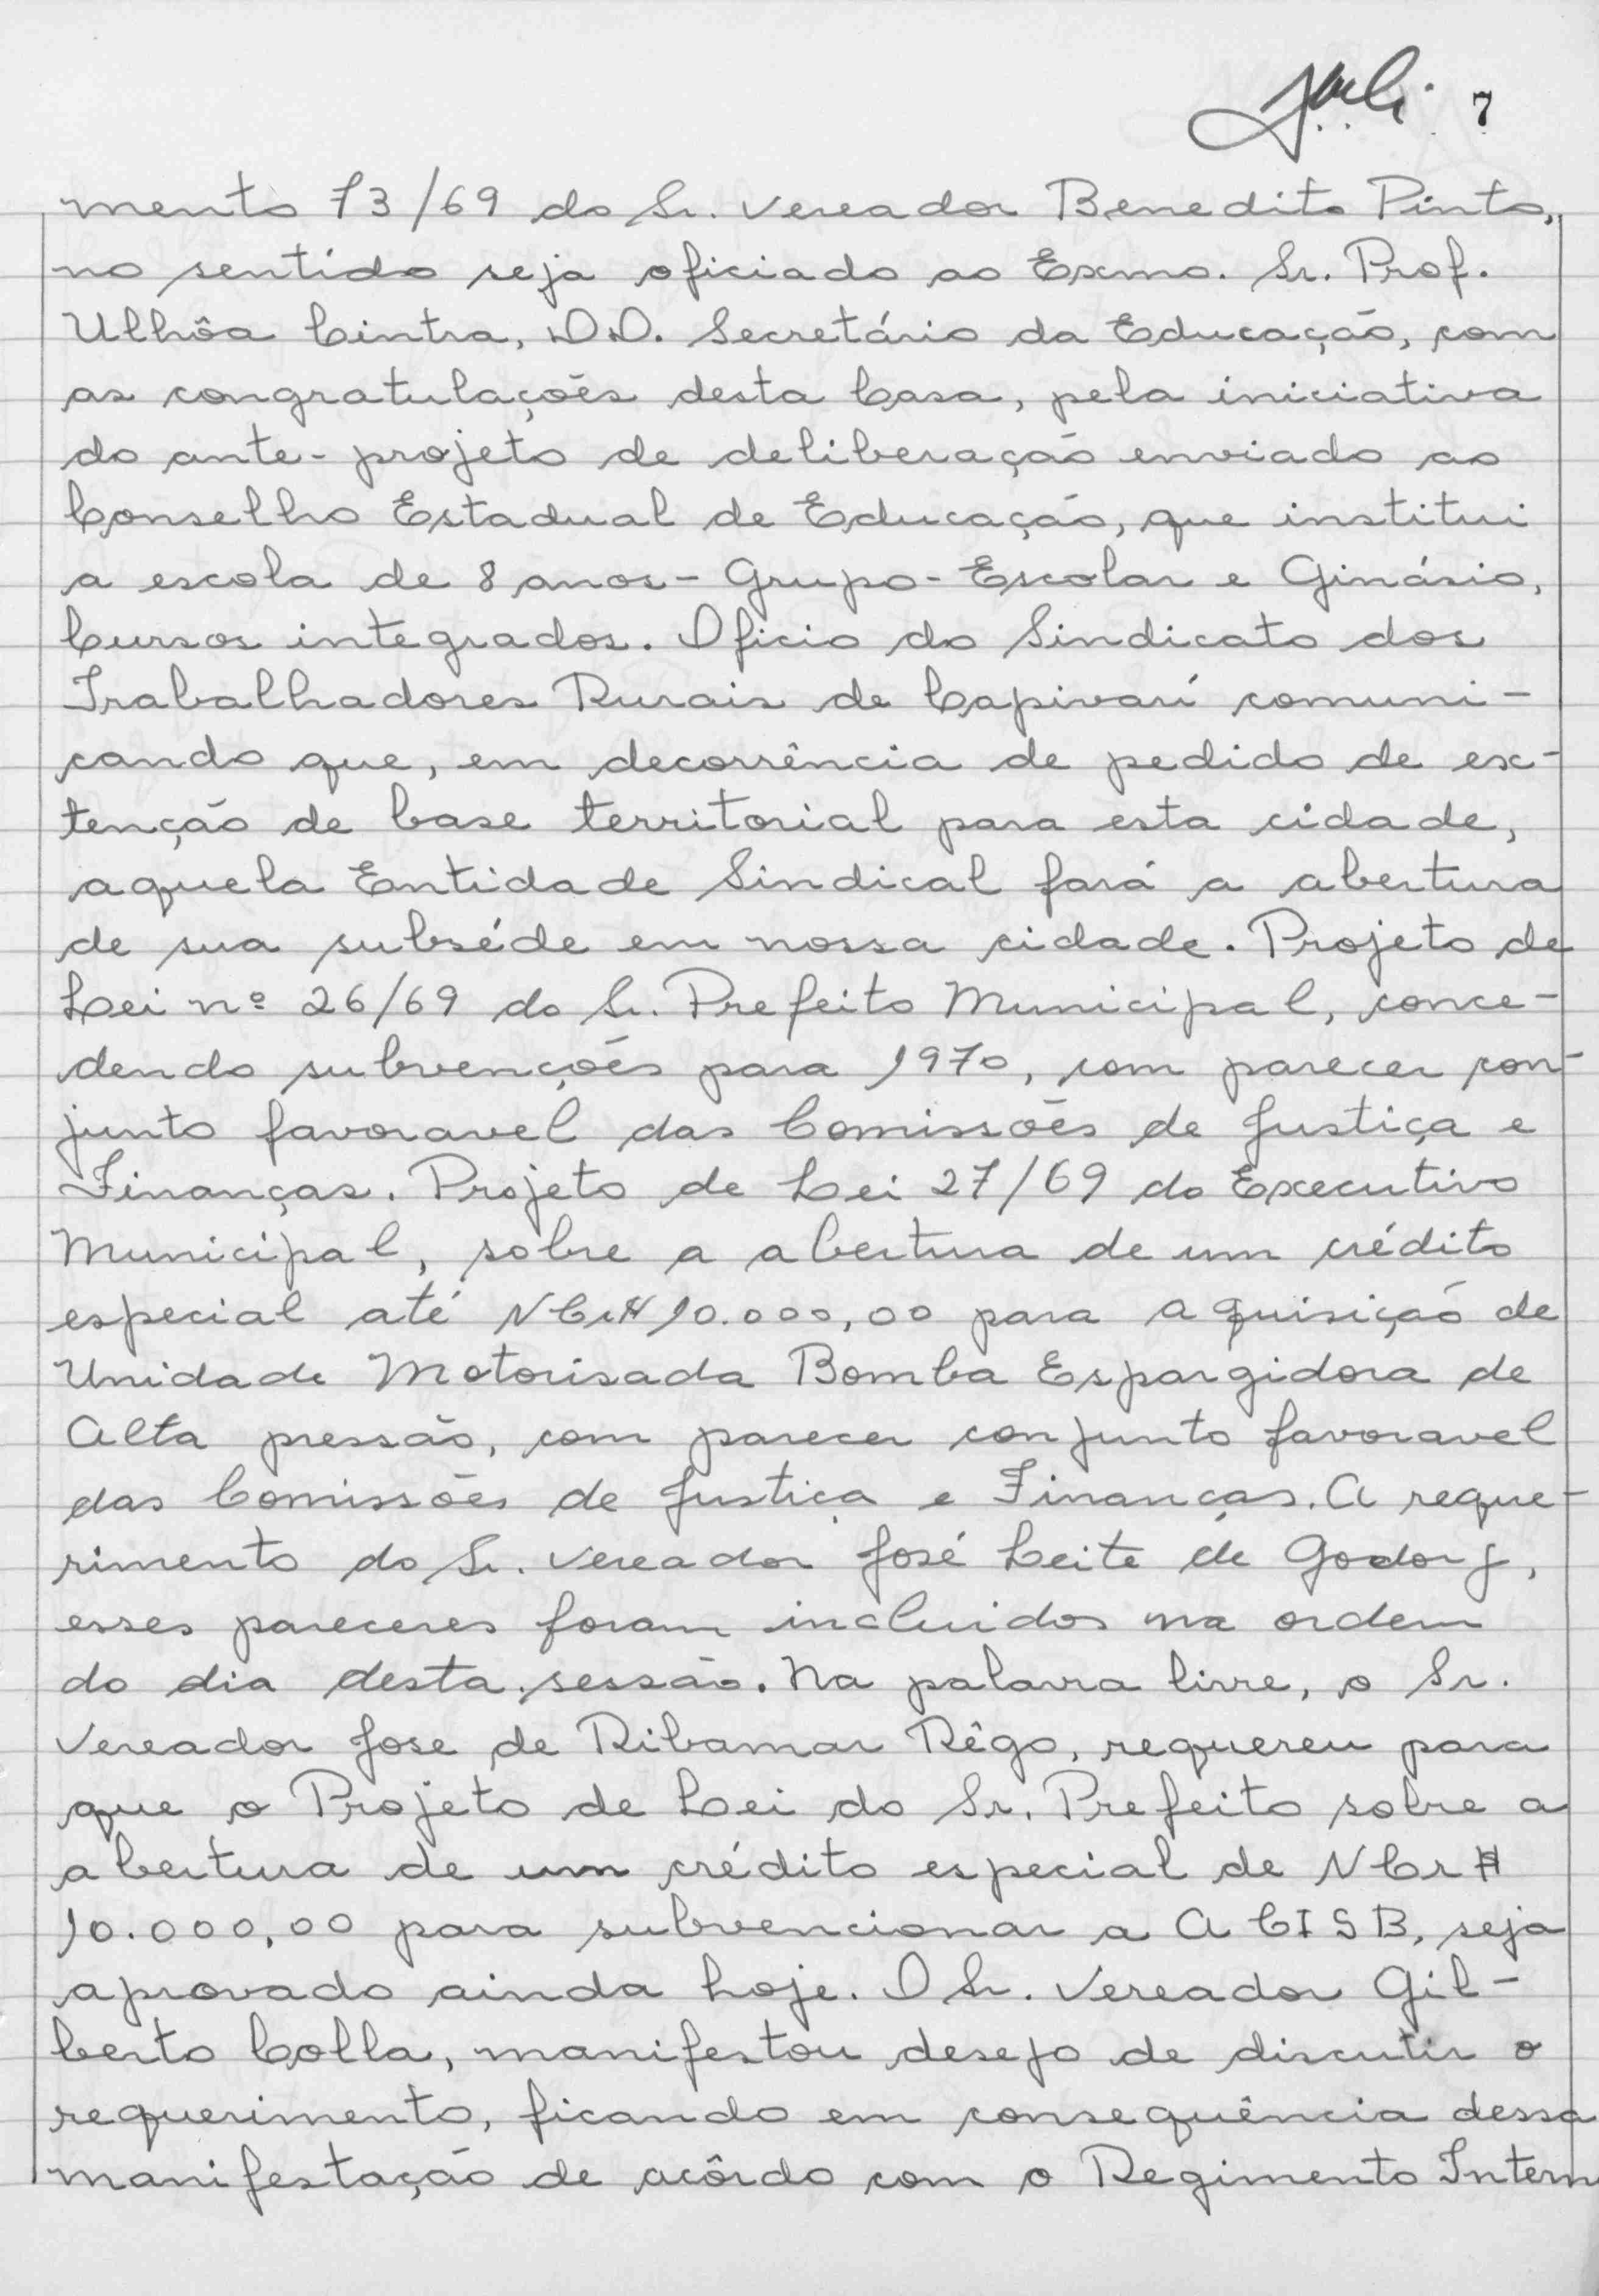 7
mento 73/69 do Sr. Vereador Benedito Pinto,
no sentido seja oficiado ao Exmo. Sr. Prof.
Ulhôa Cintra, DD. Secretário da Educação, com
as congratulações desta Casa, pela iniciativa
do ante-projeto de deliberação enviado ao
Conselho Estadual de Educação, que institui
a escola de 8 anos - Grupo-Escolar e Ginásio,
Cursos integrados. Oficio do Sindicato dos
Trabalhadores Rurais de Capivarí comuni-
cando que, em decorrência de pedido de ex-
tenção de base territorial para esta cidade,
aquela Entidade Sindical fará a abertura
de sua subséde em nossa cidade. Projeto de
Lei nº 26/69 do Sr. Prefeito Municipal, conce-
dendo subvenções para 1970, com parecer con-
junto favoravel das Comissões de Justiça e
Finanças. Projeto de Lei 27/69 do Executivo
Municipal, sobre a abertura de um crédito
especial até NCr$ 10.000,00 para aquisição de
Unidade Motorisada Bomba Espargidora de
Alta pressão, com parecer conjunto favoravel
das Comissões de Justiça e Finanças. A reque-
rimento do Sr. Vereador José Leite de Godoy,
esses pareceres foram incluidos na ordem
do dia desta sessão. Na palavra livre, o Sr.
Vereador Jose de Ribamar Rêgo, requereu para
que o Projeto de Lei do Sr. Prefeito sobre a
abertura de um crédito especial de NCr$
10.000,00 para subvencionar a ACISB, seja
aprovado ainda hoje. O Sr. Vereador Gil-
berto Colla, manifestou desejo de discutir o
requerimento, ficando em consequência dessa
manifestação de acôrdo com o Regimento Intern